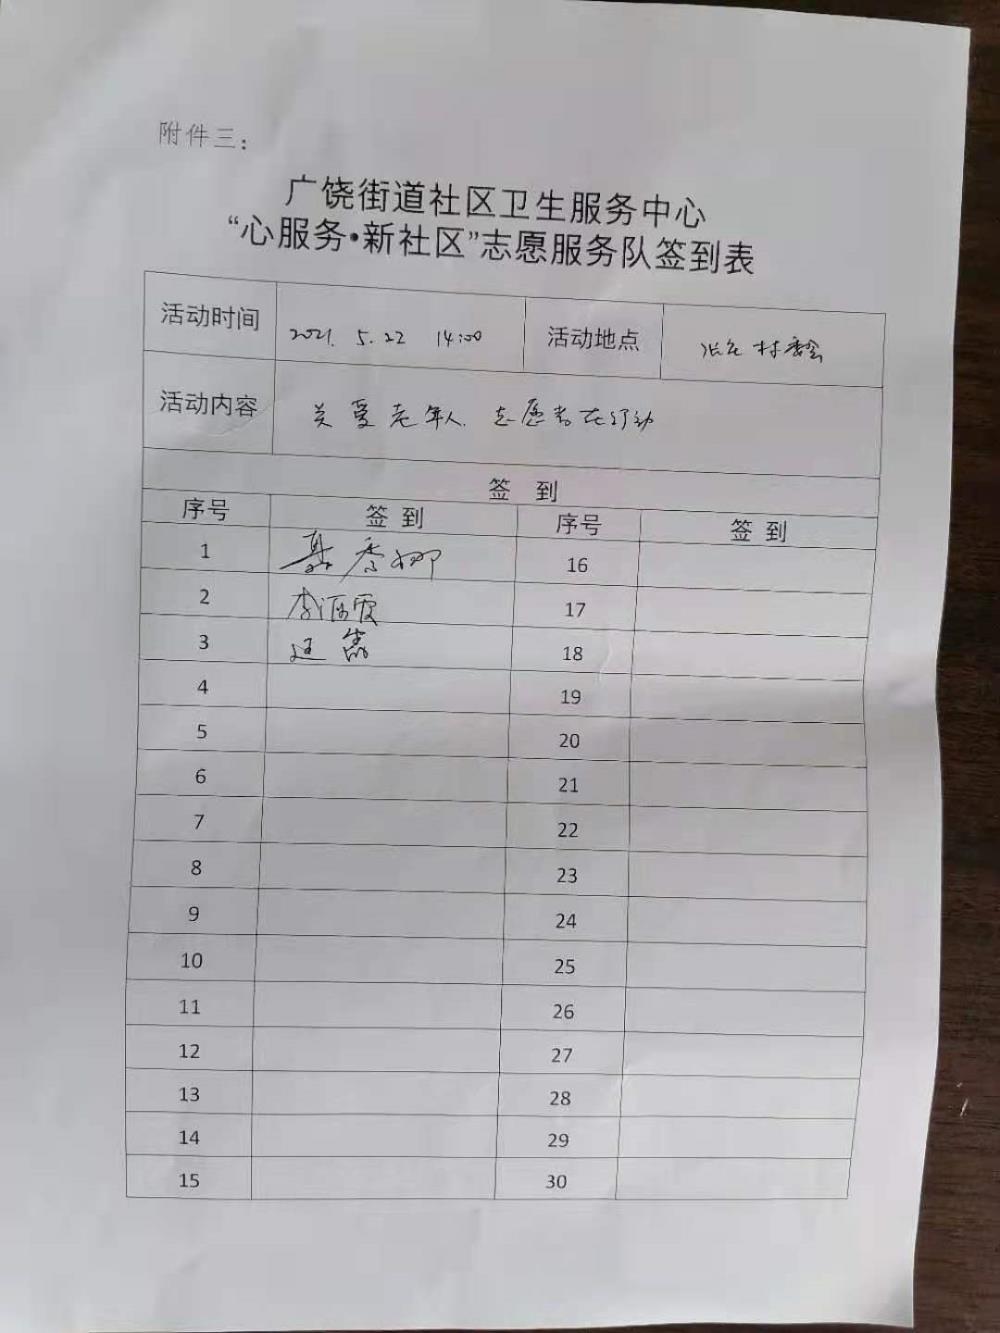 附件三:
广饶街道社区卫生服务中心
“心服务•新社区”志愿服务队签到表
活动时间 2021. 5. 22 14:00 活动地点 村委会
活动内容 关爱老年人. 志愿者在行动
签 到
序号 签 到 序号 签 到
1 16
2 李 霞 17
3 18
4 19
5 20
6 21
7 22
8 23
9 24
10 25
11 26
12 27
13 28
14 29
15 30